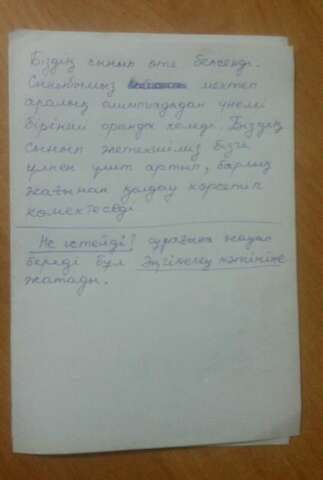 Біздің сынып өте белсенді.
Сыныбымыз мектеп
аралық олимпиададан үнемі
бірінші орынды келеді. Біздің
сынып жетекшіміз бізге
үлкен үміт артып, барлық
жағынан қолдау көрсетіп
көмектеседі
Не істейді? сұрағына жауап
береді бұл Әңгімелеу мәтініне
жатады.